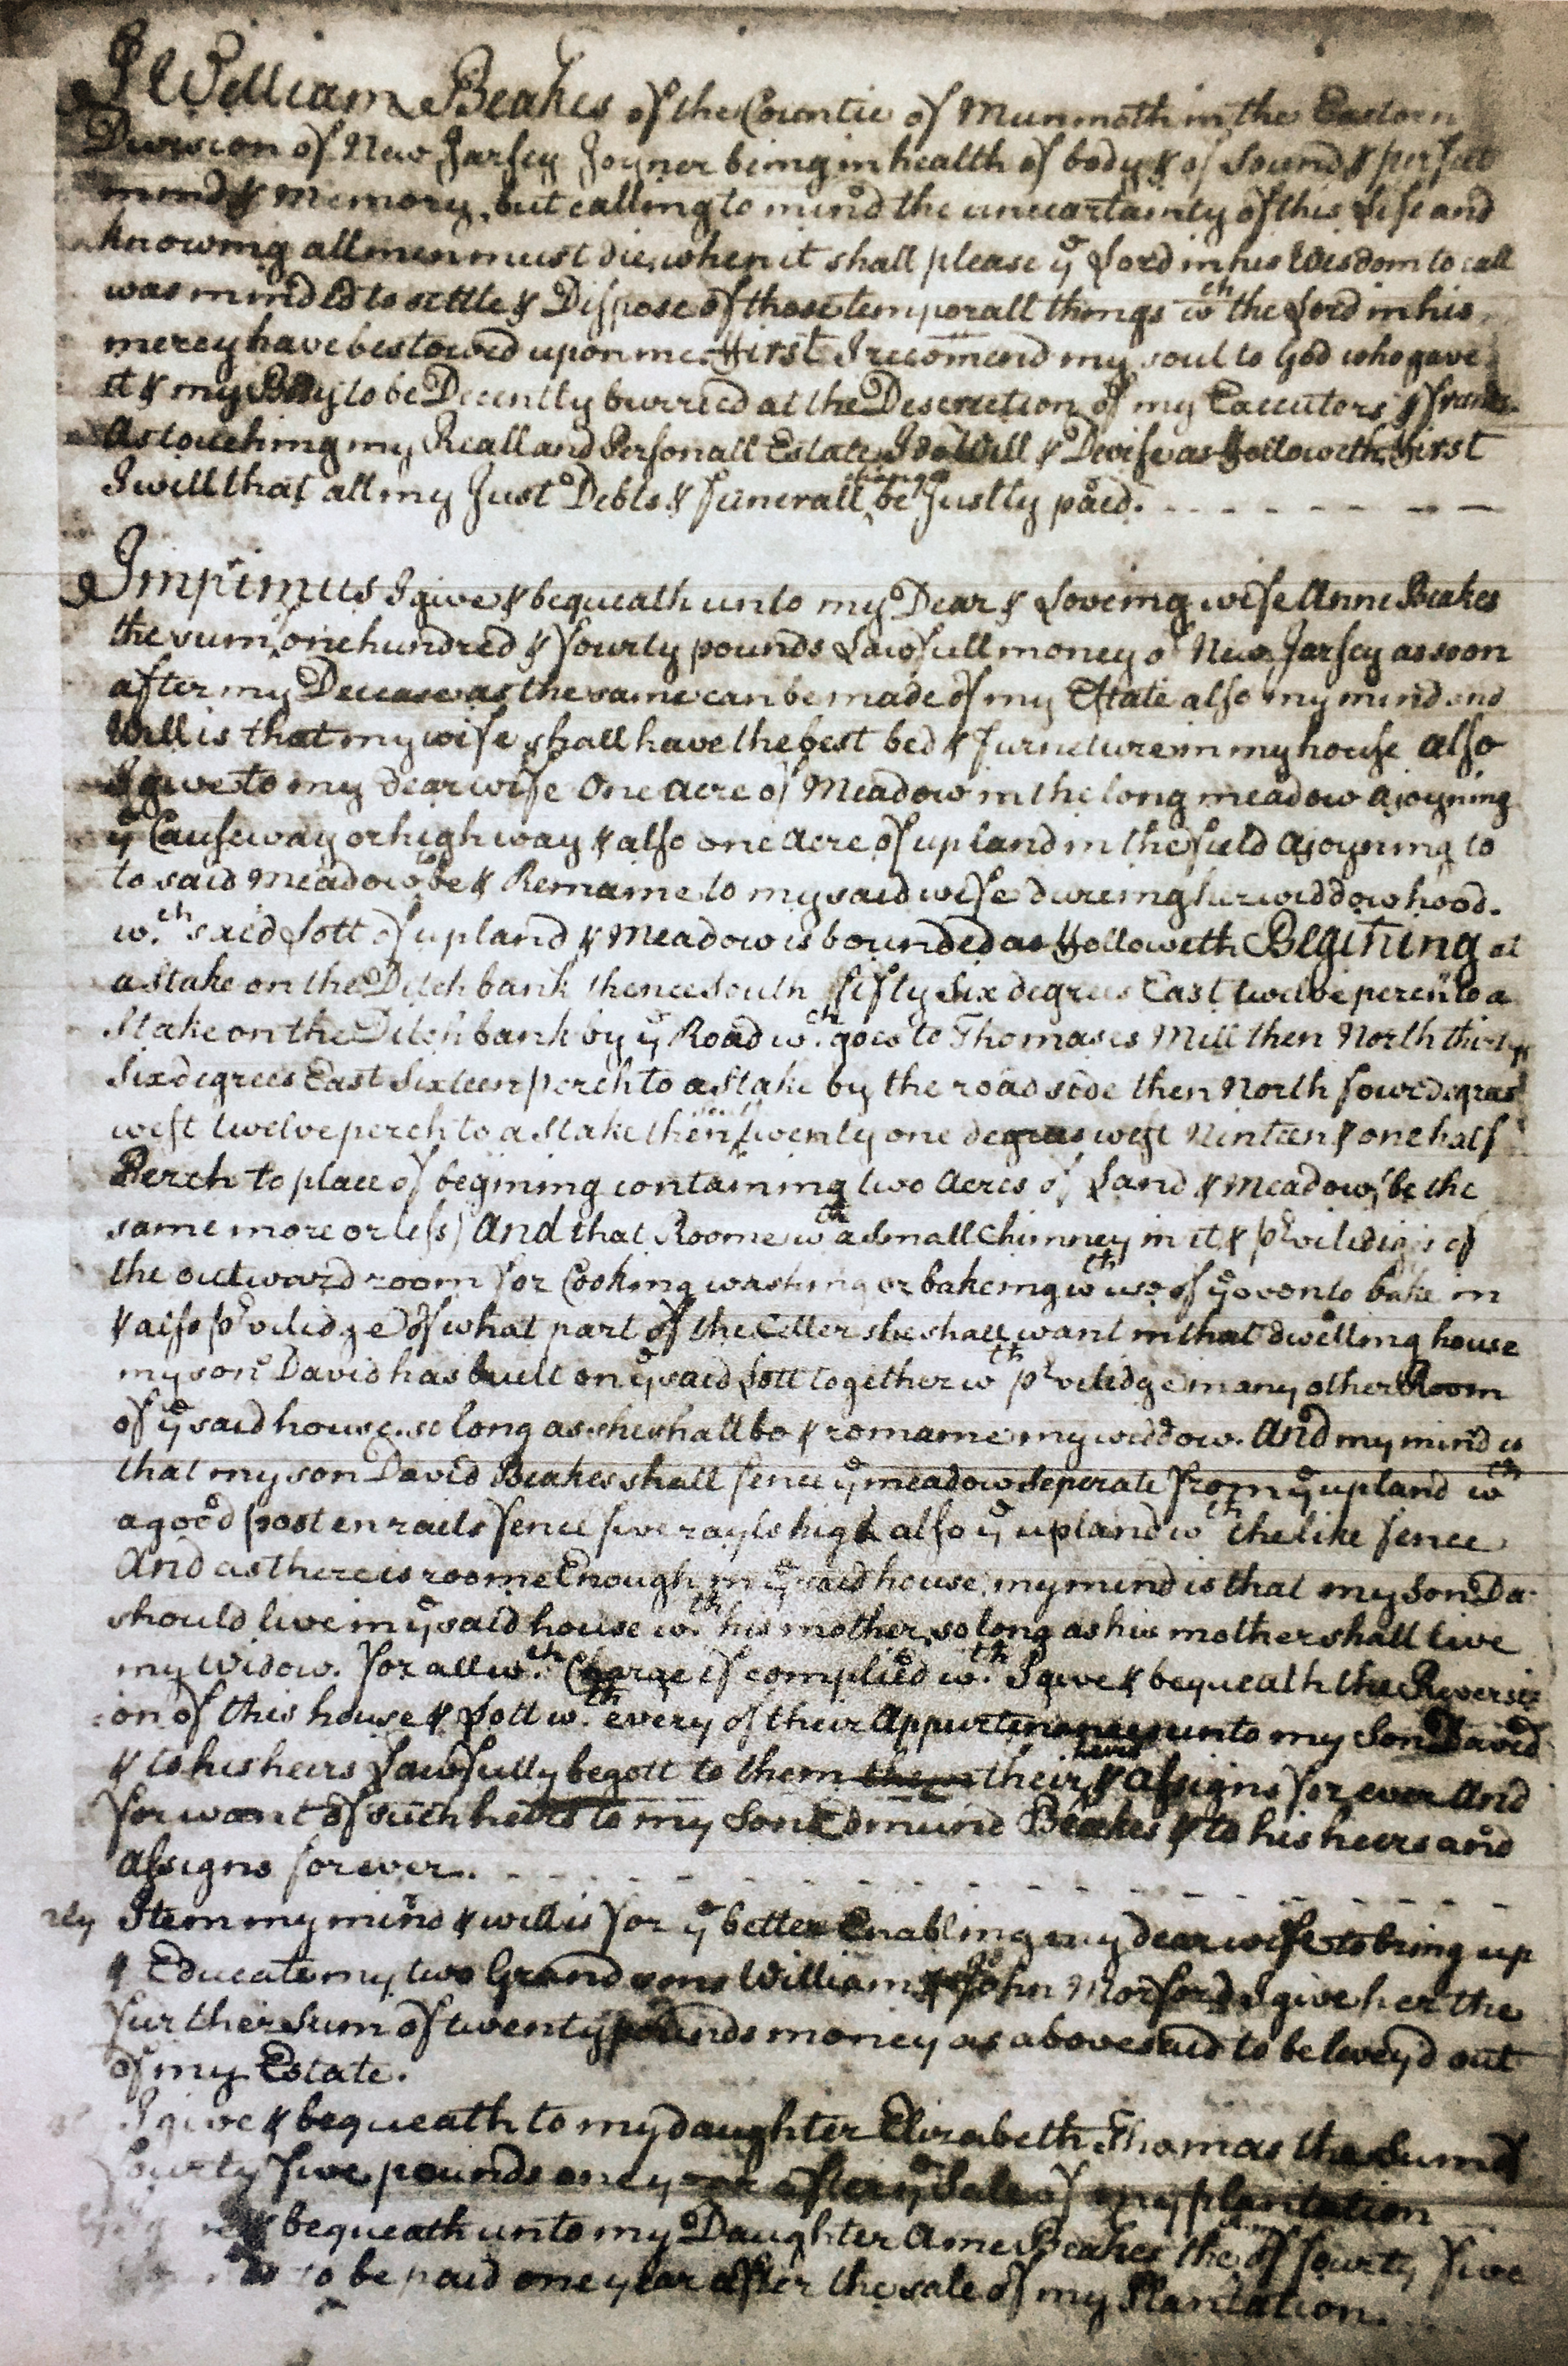 I William Beakes of the Countie of Munmoth in the Eastorn
Divission of New Jarsey Joyner being in health of body & of Sound & perfect
mind & Memory, but calling to mind the uncartainty of this Life and
knowing all men must die, when it shall please ye Lord in his Wisdom to call
was minded to settle & Dispose of those temporall things wch the Lord in his
mercy have bestowed upon me First I recomend my soul to God who gave
it & my Body to be Decently burried at the Descretion of my Executors & frends
As touching my Reall and Personall Estate I do Will & Devise as Followeth, First
I will that all my Just Debts & funerall be Justly paid.
Imprimus I give & bequeath unto my Dear & Loveing wife Anne Beakes
the sum one hundred & fourty pounds Lawfull money of New Jarsey as soon
after my Decease as the same can be made of my Estate also my mind and
Will is that my wife shall have the best bed & furneture in my house also
I give to my dear wife One Acre of Meadow in the long meadow ajoyning
ye Causeway or high way & also one Acre of up land in the field ajoyning to
to said Meadow be & Remaine to my said wife dureing her widdowhood.
w.ch said Lott of upland & Meadow is bounded as Followeth Begining at
a stake on the Ditch bank thence South fifty Six degrees East twelve perch to a
Stake on the Ditch bank by ye Road w.ch goes to Thomases Mill then North thirty
Six degrees East Sixteen perch to a Stake by the road side then North four degrees
west twelve perch to a Stake then twenty one degrees west Ninteen & one half
Perch to place of begining containing two Acres of Land & Meadow (be the
same more or less) And that Roome wth a small Chimney in it & prviledges of
the outward room for Cooking washing or bakeing wth use of ye oven to bake in
& also prviledge of what part of the Celler she shall want in that dwelling house
my son David has buelt on ye said Lott together wth prviledge in any other Room
of ye said house. so long as she shall be & romaine my widdow. And my mind is
that my son David Beakes shall fence ye meadow Seperate from ye upland wth
a good post en rails fence five rayls high also ye upland wth the like fence
And as there is roome Enough in ye said house, my mind is that my Son Da-
should live in ye said house w.th his mother, so long as his mother shall live
my Widow. for all w.ch Charge if complied w.th I give & bequeath the Reversi
on of this house & Lott w.th every of their Appurtenances unto my Son David
& to his heirs Lawfully begott to them them their heirs & Assigns for ever And
for want of such heirs to my Son Edmund Beakes & to his heirs and
Assigns for ever.
rly Item my mind & will is for ye better Enabling my dear wife to bring up
& Educate my two Grand sons William & John Morford I give her the
further Sum of twenty pounds money as abovesaid to be leveyd out
of my Estate.
I give & bequeath to my daughter Elizabeth Thomas the Sum of
fourty five pounds one year after ye Sale of my plantation
& bequeath unto my Daughter Ame Beakes the of fourty five
to be paid one year after the sale of my Plantation.